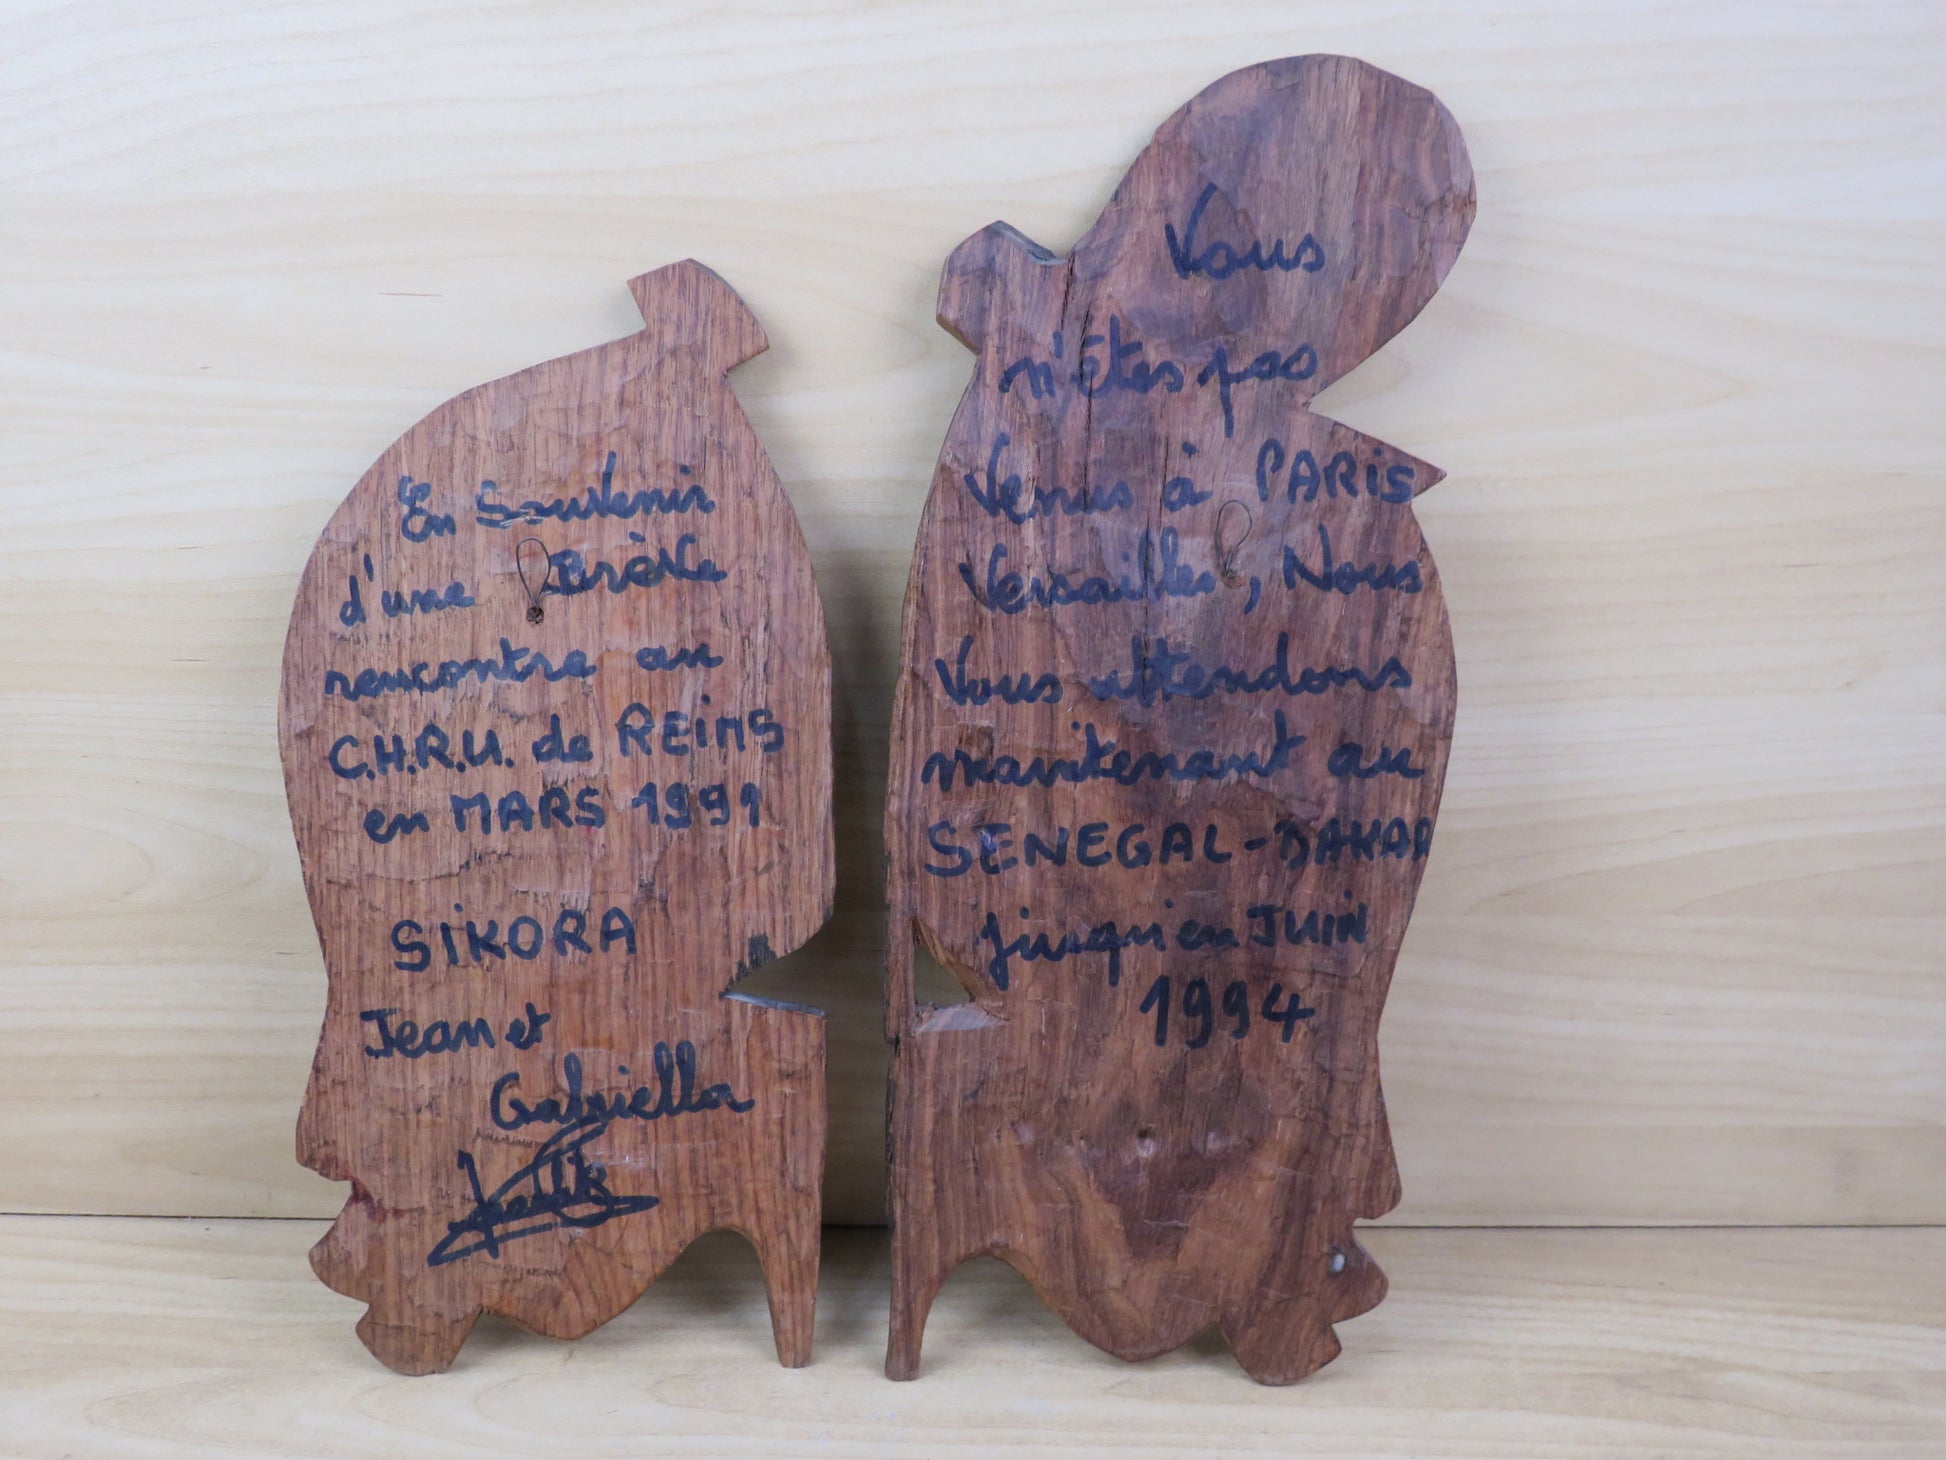 En Souvenir
d'une Brève
rencontre au
C.H.R.U. de REiMS
en MARS 1991
SiKORA
Jean et
Gabriella
Vous
n'êtes pas
Venus à PARiS
Versailles, Nous
Vous attendons
maintenant au
SENEGAL-DAKAR
jusqu'en JUiN
1994